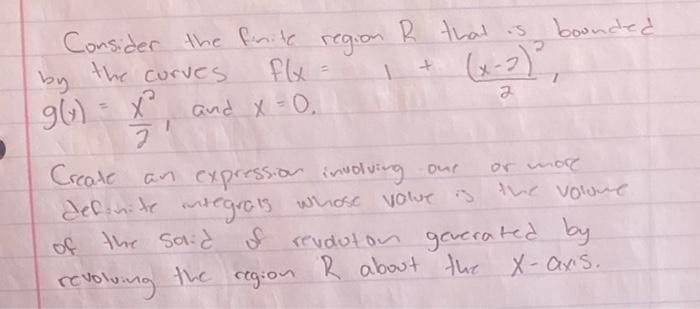 Consider the finite region R that is bounded
by the curves f(x = 1 + (x-2)²/2,
g(x) = x²/2, and x = 0.
Create an expression involving one or more
definite integrals whose value is the volume
of the solid of revolution generated by
revolving the region R about the x-axis.